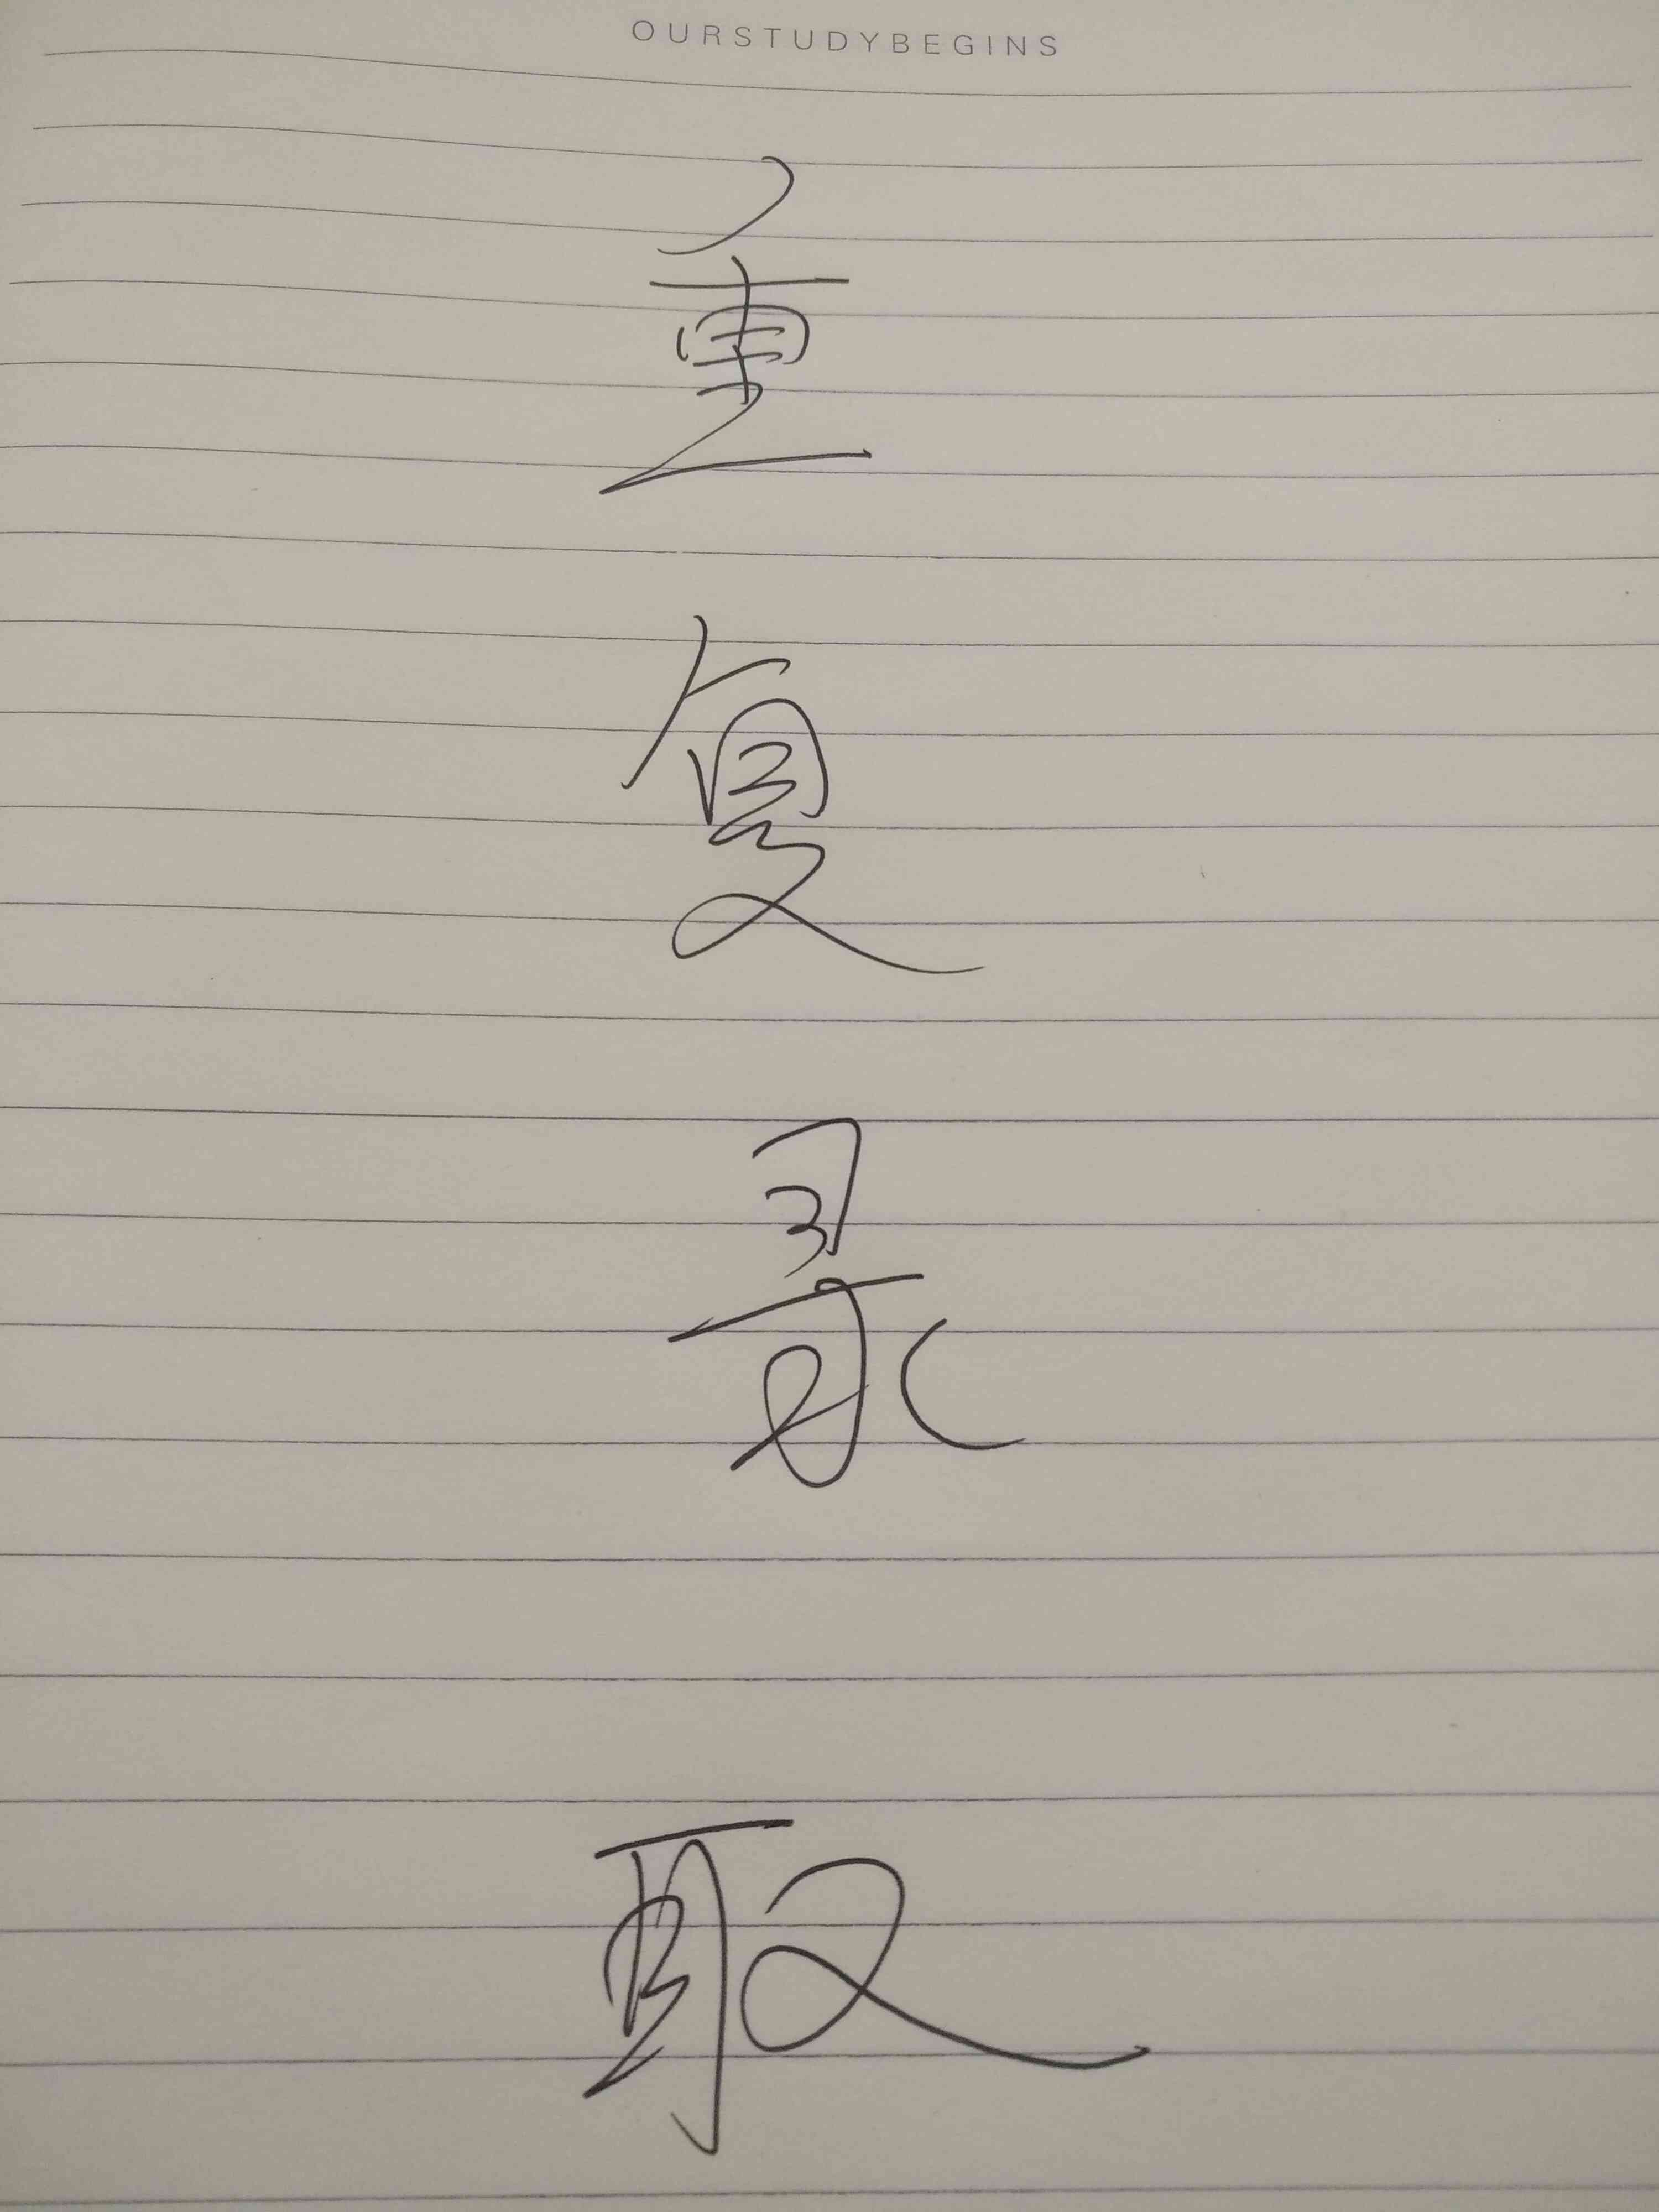 OURSTUDYBEGINS
重
复
录
取